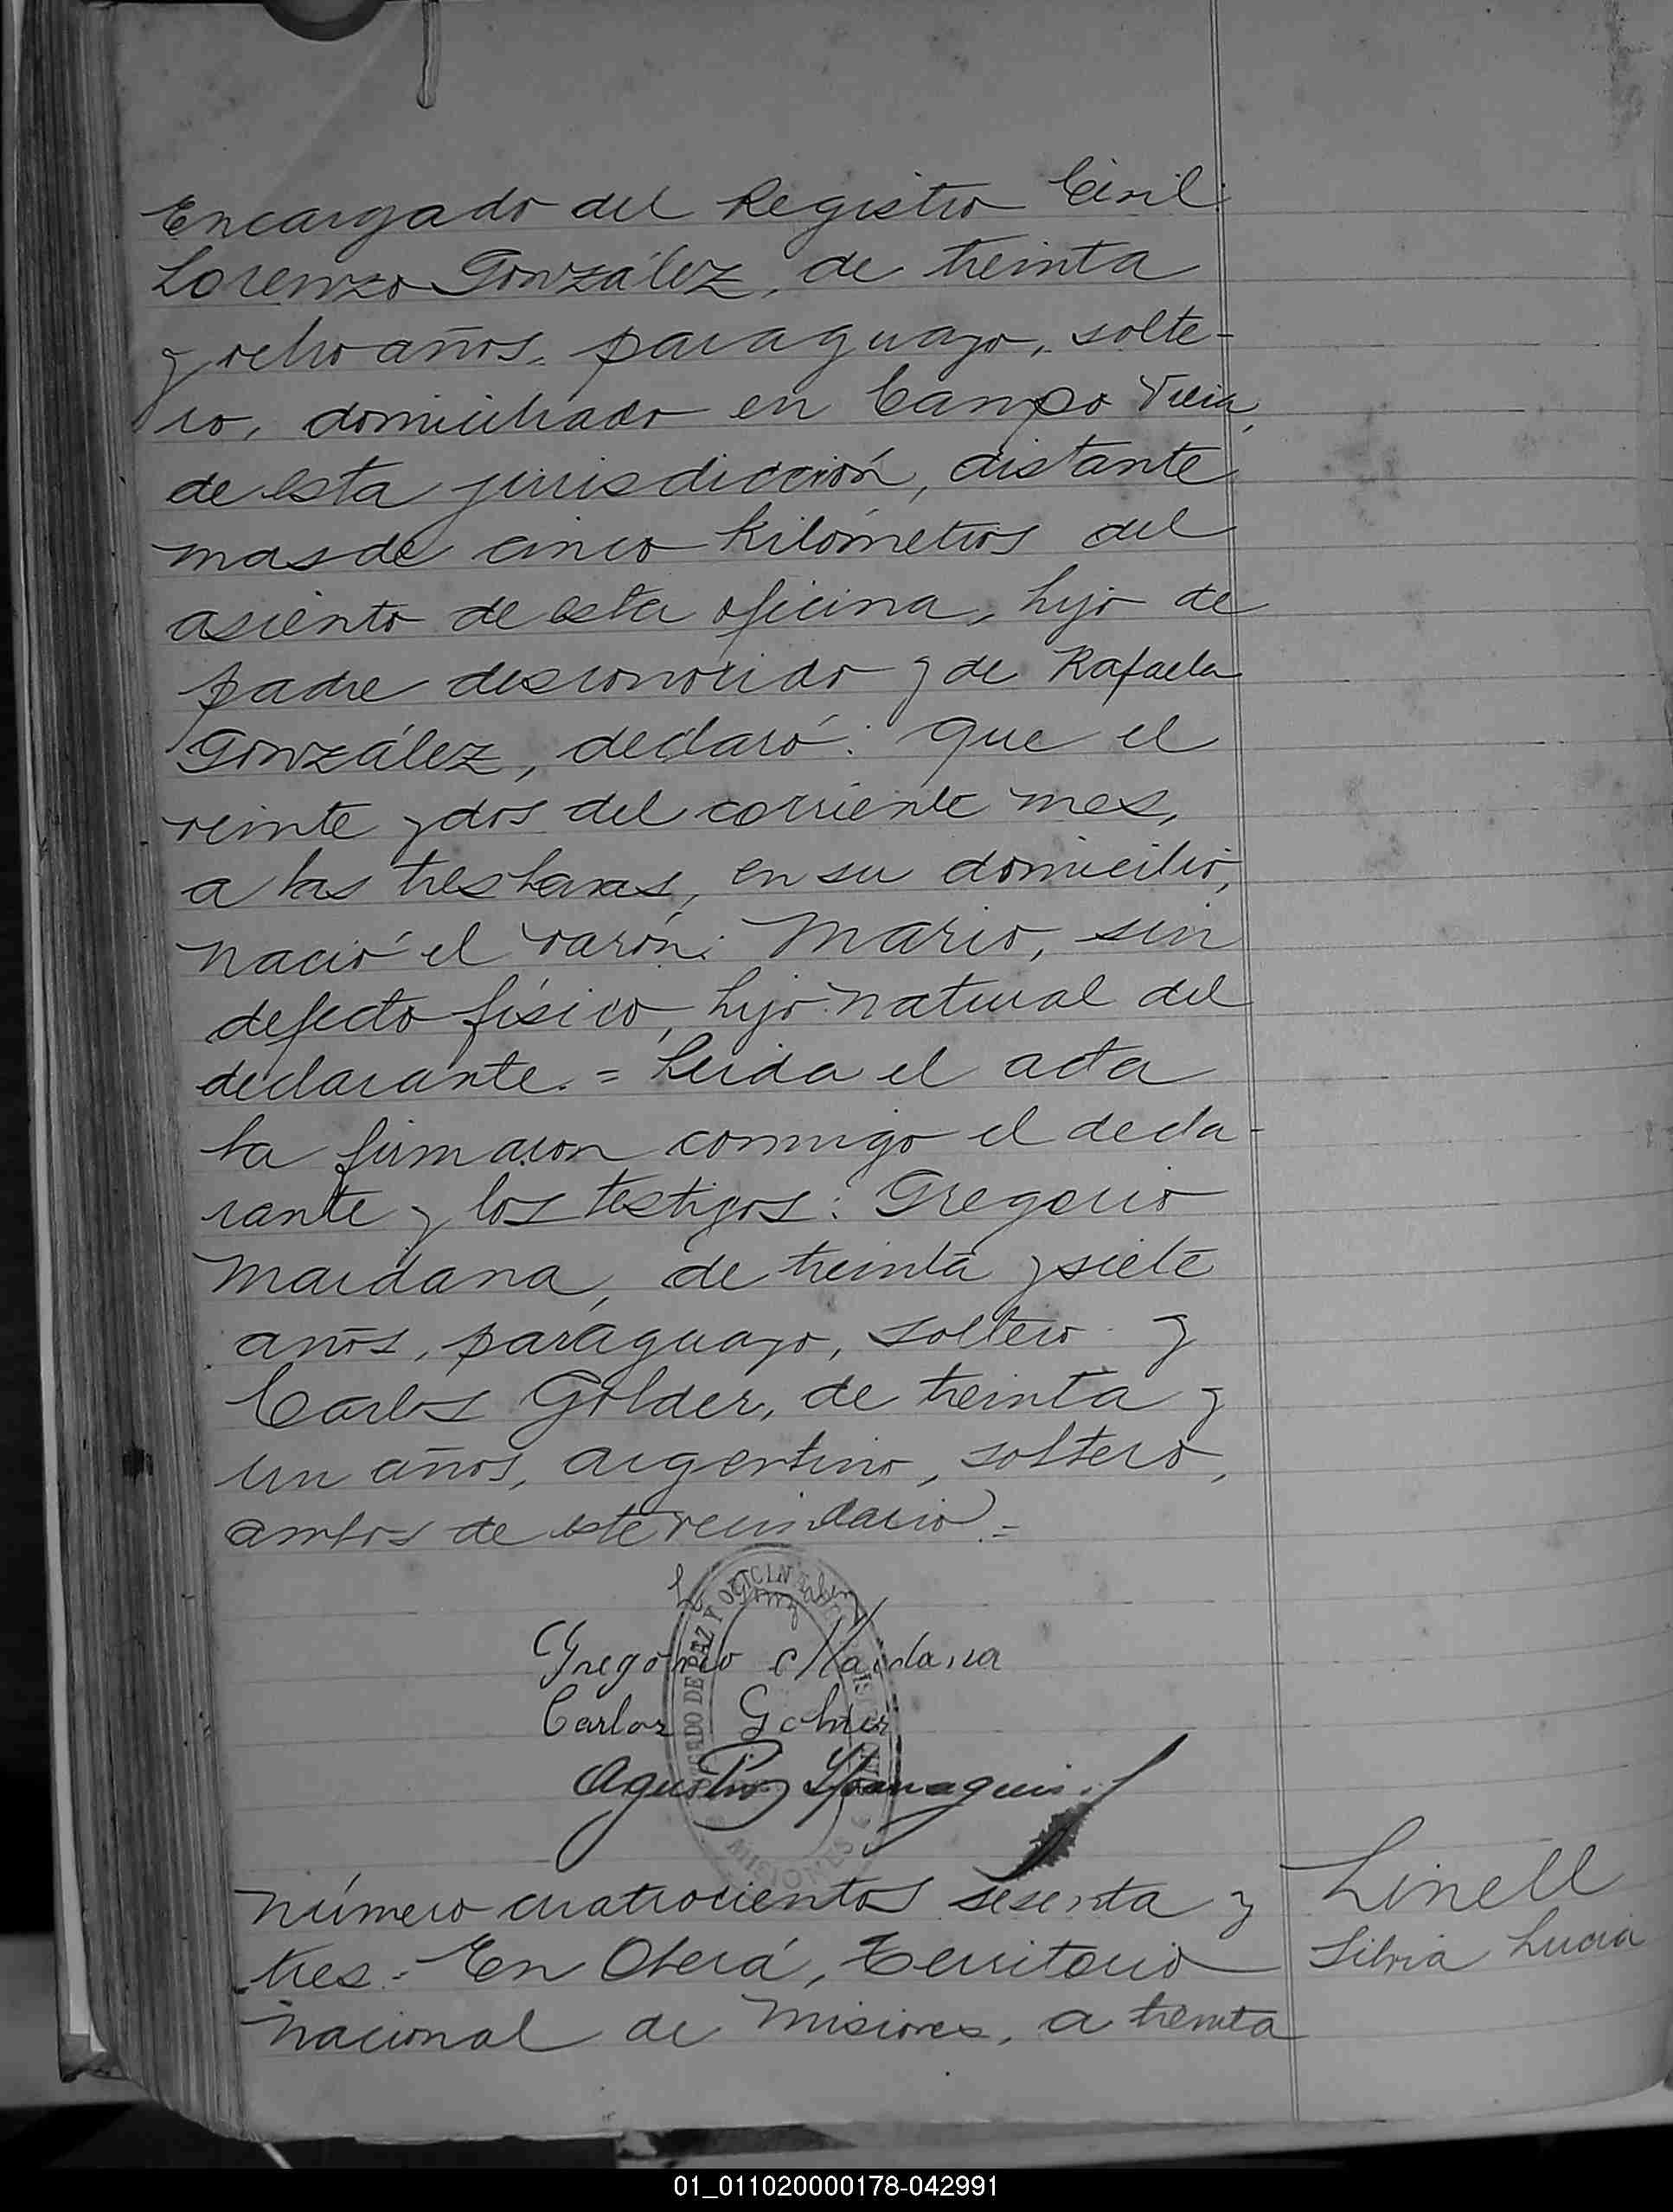 Encargado del Registro Civil:
Lorenzo González, de treinta
y ocho años, paraguayo, solte-
ro, domiciliado en Campo Viera,
de esta jurisdicción, distante
mas de cinco kilómetros del
asiento de esta oficina, hijo de
padre desconocido y de Rafaela
González, declaró: que el
veinte y dos del corriente mes,
a las tres horas, en su domicilio,
nació el varón: Mario, sin
defecto físico, hijo natural del
declarante. = Leida el acta
la firmaron conmigo el decla-
rante y los testigos: Gregorio
Maidana, de treinta y siete
años, paraguayo, soltero y
Carlos Golder, de treinta y
un años, argentino, soltero,
ambos de este vecindario =
Gregorio Maidana
Carlos Golder
Agustin
JUZGADO DE PAZ Y OFICINA
MISIONES
Número cuatrocientos sesenta y
tres. = En Oberá, Territorio
Nacional de Misiones, a treinta
Linell
Silvia Lucia
01_011020000178-042991